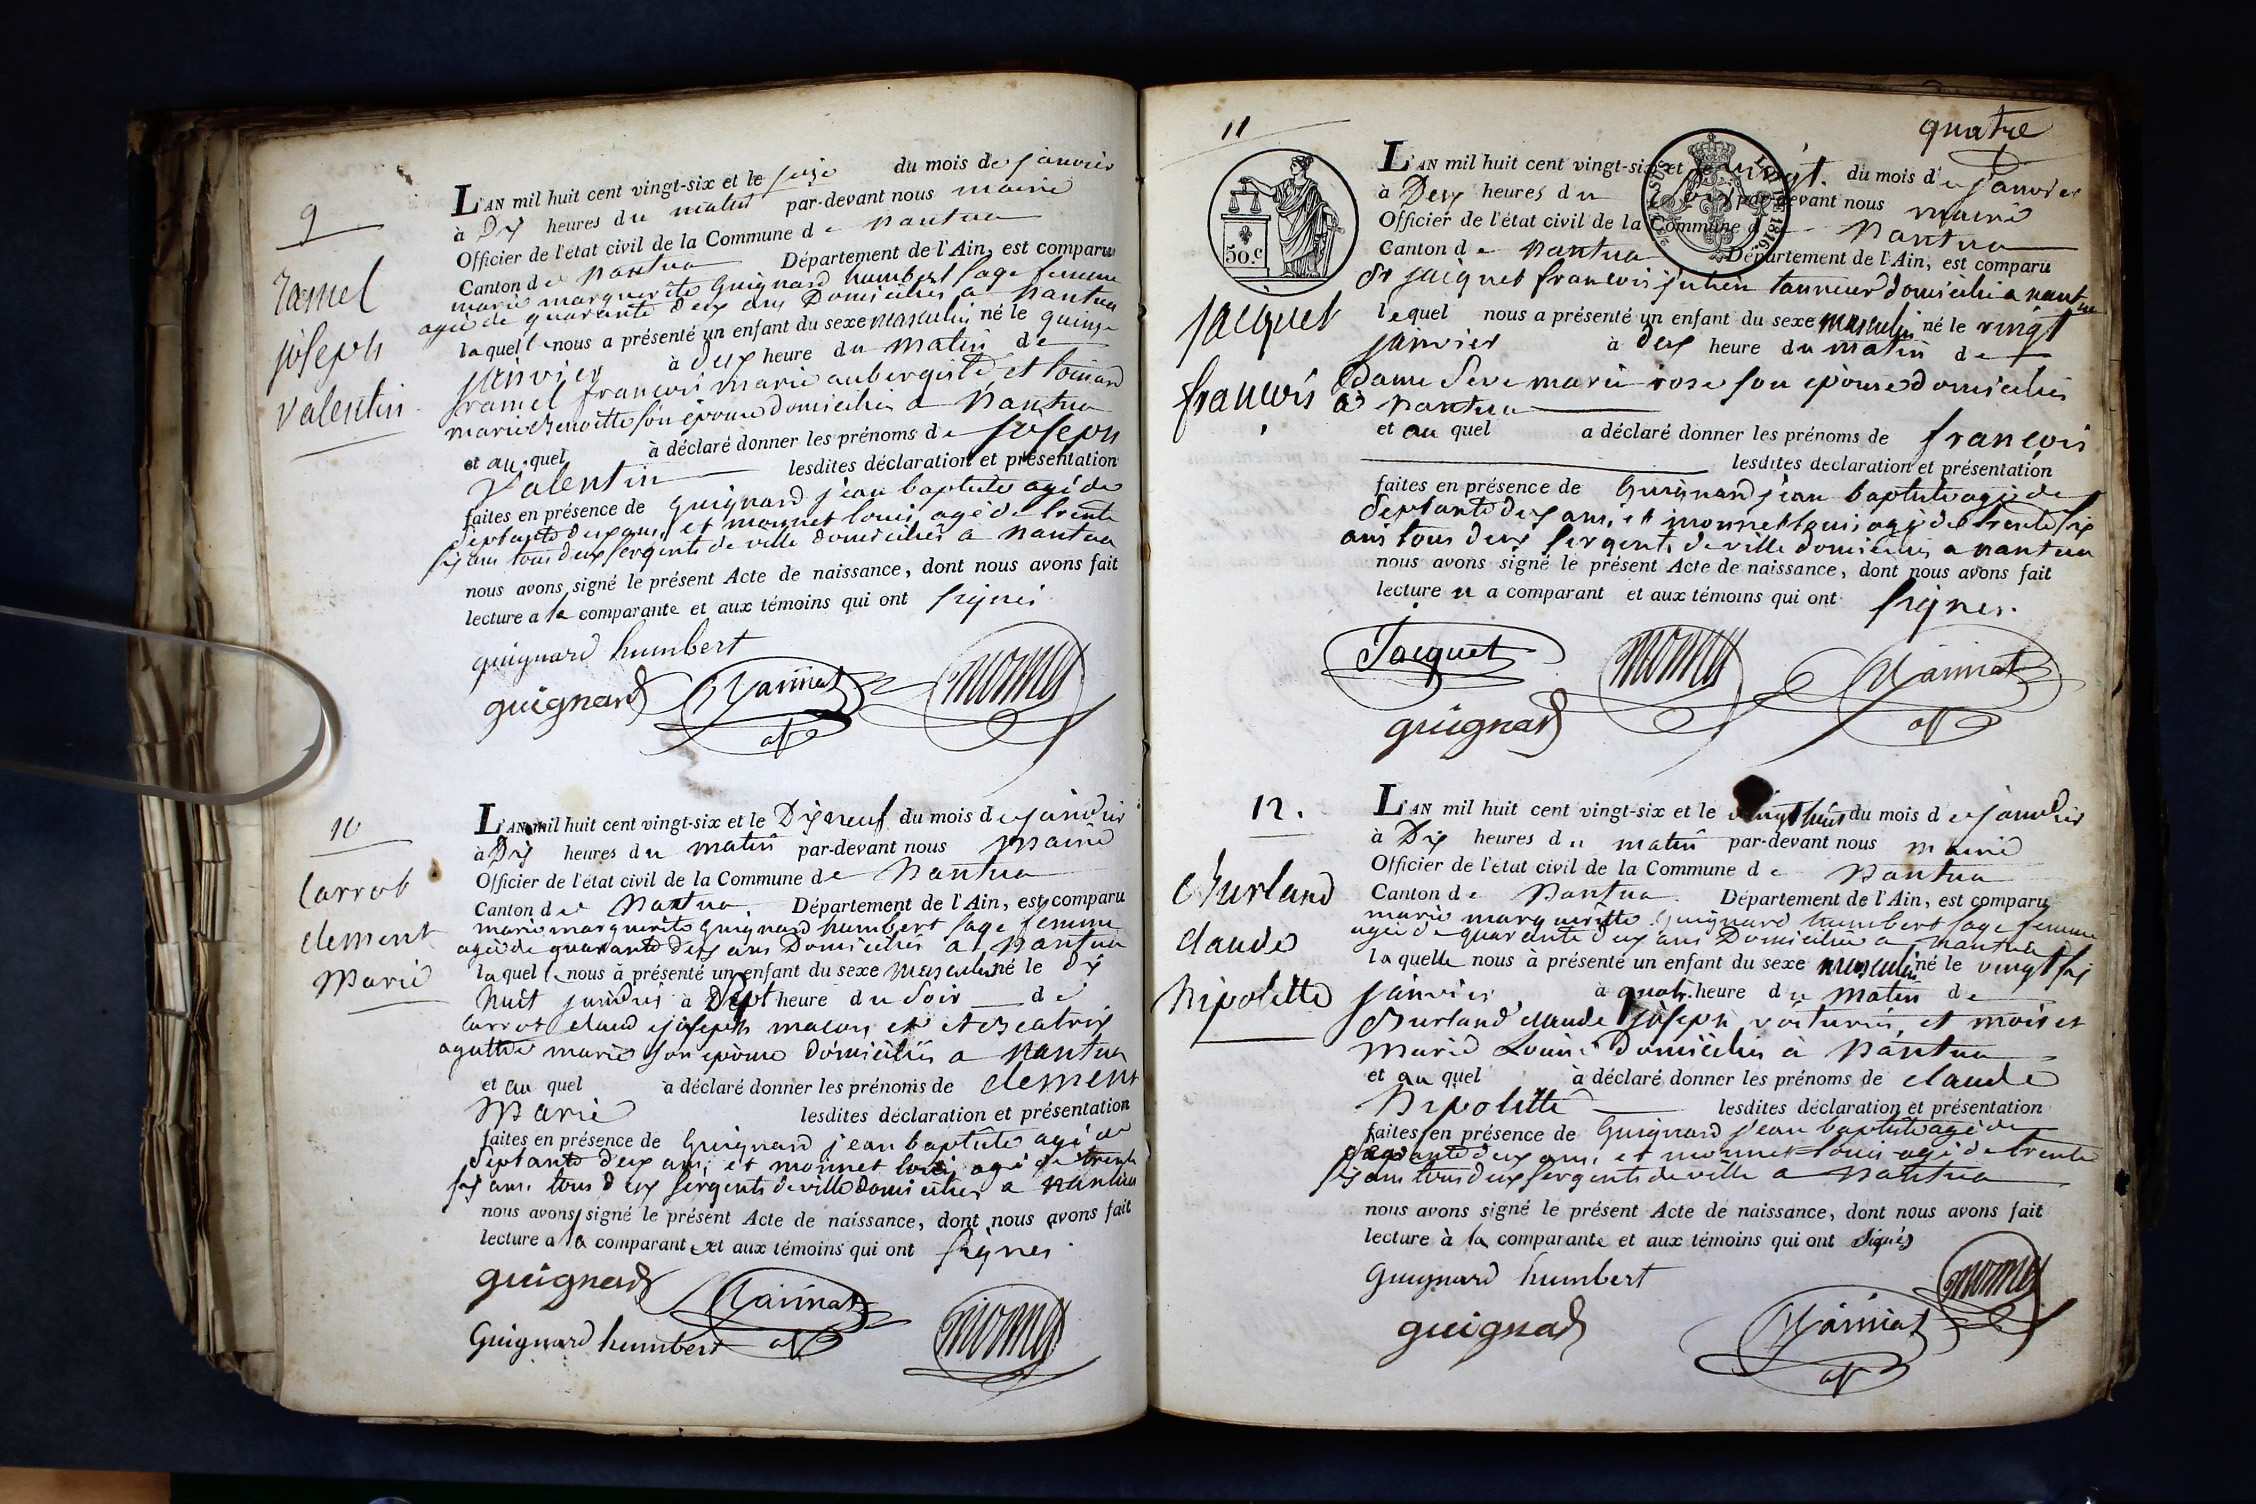 9
ramel
joseph
valentin
L'AN mil huit cent vingt-six et le seize du mois de janvier
à Dix heures du matin par-devant nous maire
Officier de l'état civil de la Commune de nantua
Canton de nantua Département de l'Ain, est comparu
marie marguerite Guignard humbert sage femme
agée de quarante deux ans Domiciliée a nantua
laquelle nous a présenté un enfant du sexe masculin né le quinze
janvier à deux heure du matin de
ramel francois marie aubergiste et
marie benoitte son épouse domiciliés a nantua
et au quel à déclaré donner les prénoms de joseph
Valentin lesdites déclaration et présentation
faites en présence de Guignard jean baptiste agé de
septante deux ans, et monnet louis agé de trente
six ans tous deux sergents de ville domiciliés a nantua
nous avons signé le présent Acte de naissance, dont nous avons fait
lecture a la comparante et aux témoins qui ont signés
guignard humbert
guignard monnet
10
Carrot
clement
Marie
L'AN mil huit cent vingt-six et le Dix neuf du mois de janvier
à Dix heures du matin par-devant nous maire
Officier de l'état civil de la Commune de Nantua
Canton de Nantua. Département de l'Ain, est comparu
marie marguerite Guignard humbert sage femme
agée de quarante deux ans Domiciliée a nantua
laquelle nous à présenté un enfant du sexe masculin né le dix
huit janvier à Sept heure du soir de
Carrot claude joseph macon et
agathe marie son épouse domiciliés a nantua
et au quel a déclaré donner les prénoms de clement
Marie lesdites déclaration et présentation
faites en présence de Guignard jean baptiste agé de
Septante deux ans, et monnet louis agé de trente
six ans. tous deux sergents de ville domiciliés a nantua
nous avons signé le présent Acte de naissance, dont nous avons fait
lecture a la comparante et aux témoins qui ont signés
guignard
Guignard humbert monnet
quatre
11
jacquet
francois
50.c
LOI DE 1816.
L'AN mil huit cent vingt-six et le vingt du mois de janvier
à Deux heures du soir par-devant nous maire
Officier de l'état civil de la Commune de Nantua
Canton de Nantua Département de l'Ain, est comparu
Sr jacquet francois julien tanneur domicilié a nantua
lequel nous a présenté un enfant du sexe masculin né le vingt
janvier à deux heure du matin de
Dame Seve marie rose son épouse domiciliés
a nantua
et au quel a déclaré donner les prénoms de françois
lesdites declaration et présentation
faites en présence de Guignard jean baptiste agé de
Septante deux ans, et monnet louis agé de trente six
ans tous deux sergents de ville domiciliés a nantua
nous avons signé le présent Acte de naissance, dont nous avons fait
lecture u a comparant et aux témoins qui ont signés.
Jacquet monnet
guignard
12.
Burland
claude
hipolitte
L'AN mil huit cent vingt-six et le vingt huit du mois de janvier
à Dix heures du matin par-devant nous maire
Officier de l'état civil de la Commune de Nantua
Canton de Nantua Département de l'Ain, est comparu
marie margueritte Guignard humbert sage femme
agée de quarante deux ans Domiciliée a nantua
laquelle nous à présenté un enfant du sexe masculin né le vingt six
janvier à quatre heure du matin de
Burland claude joseph voiturier, et
Marie Louise domiciliés à Nantua
et au quel à déclaré donner les prénoms de claude
hipolitte lesdites déclaration et présentation
faites en présence de Guignard jean baptiste agé de
septante deux ans, et monnet louis agé de trente
six ans tous deux sergents de ville a Nantua
nous avons signé le présent Acte de naissance, dont nous avons fait
lecture à la comparante et aux témoins qui ont signés
Guignard humbert monnet
guignard